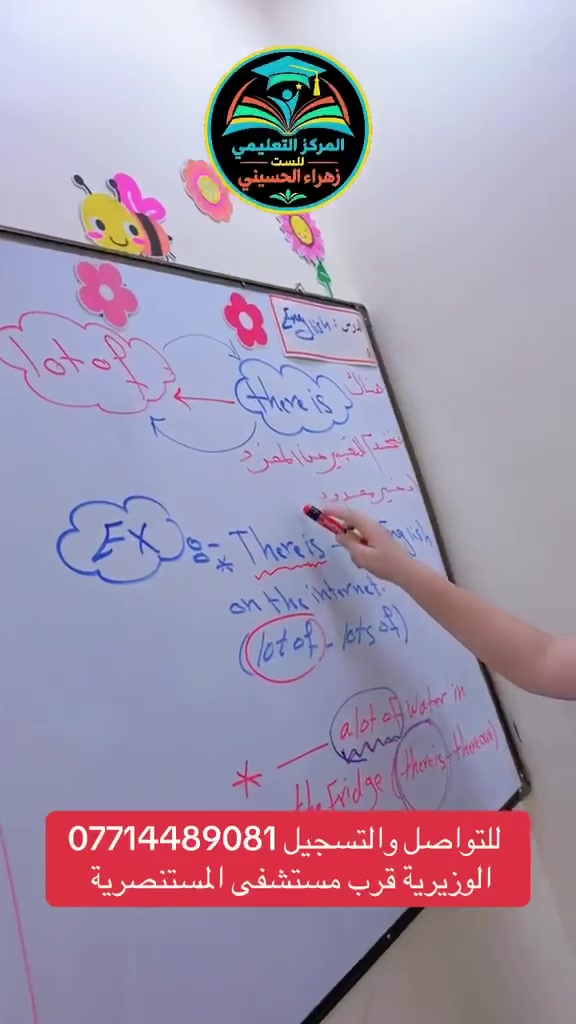 المركز التعليمي
للست
زهراء الحسيني
الدرس: English
lot of
there is
هناك
نستخدم للتعبير عن المفرد
Ex:- * There is - English
on the internet.
(lot of - lots of)
* — a lot of water in
the Fridge (there is - there are)
للتواصل والتسجيل 07714489081
الوزيرية قرب مستشفى المستنصرية